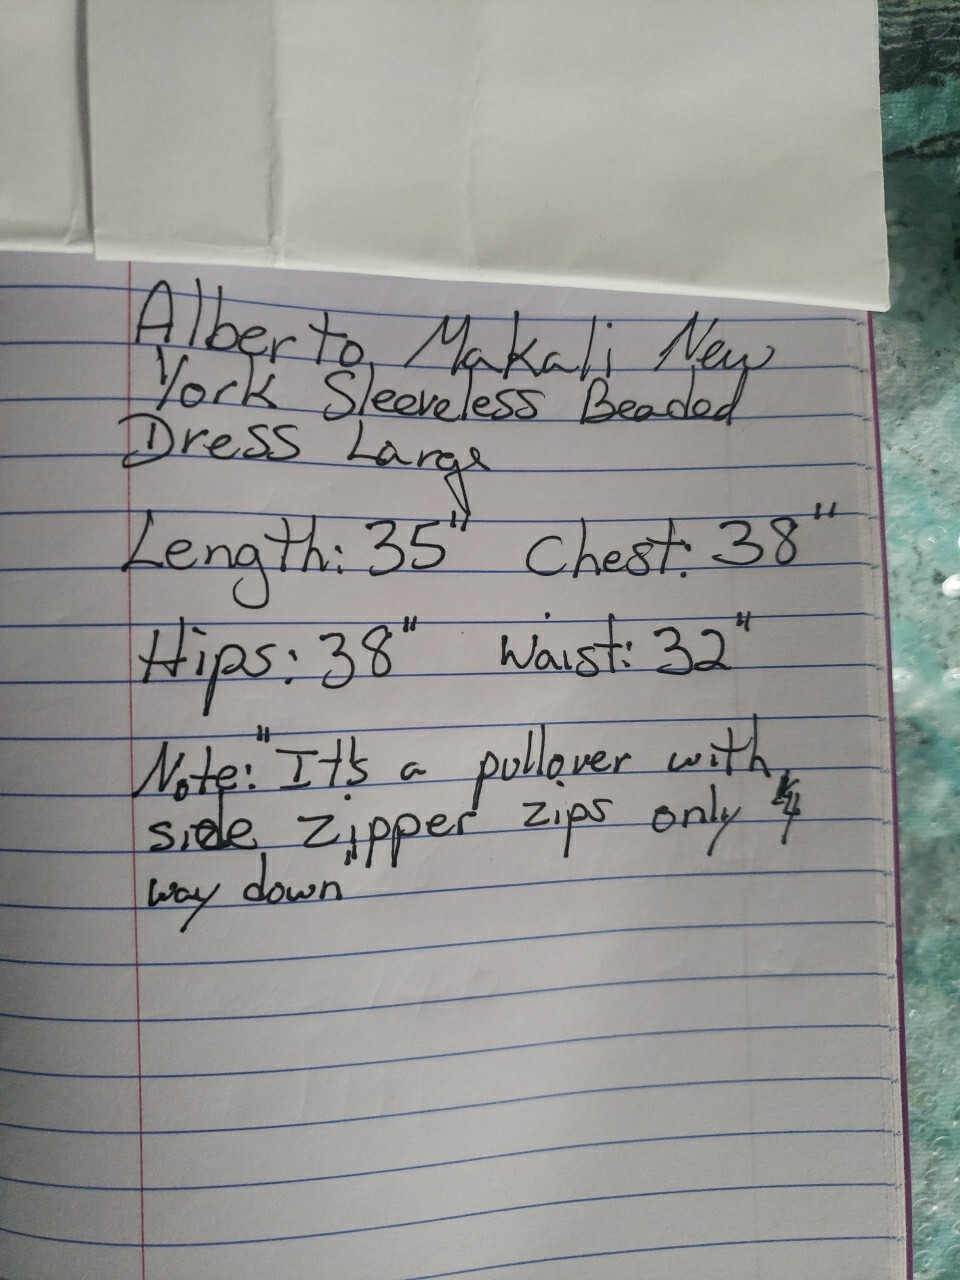 Alberto Makali New
York Sleeveless Beaded
Dress Large
Length: 35" Chest: 38"
Hips: 38" Waist: 32"
Note: "It's a pullover with
side zipper zips only 1/4
way down"